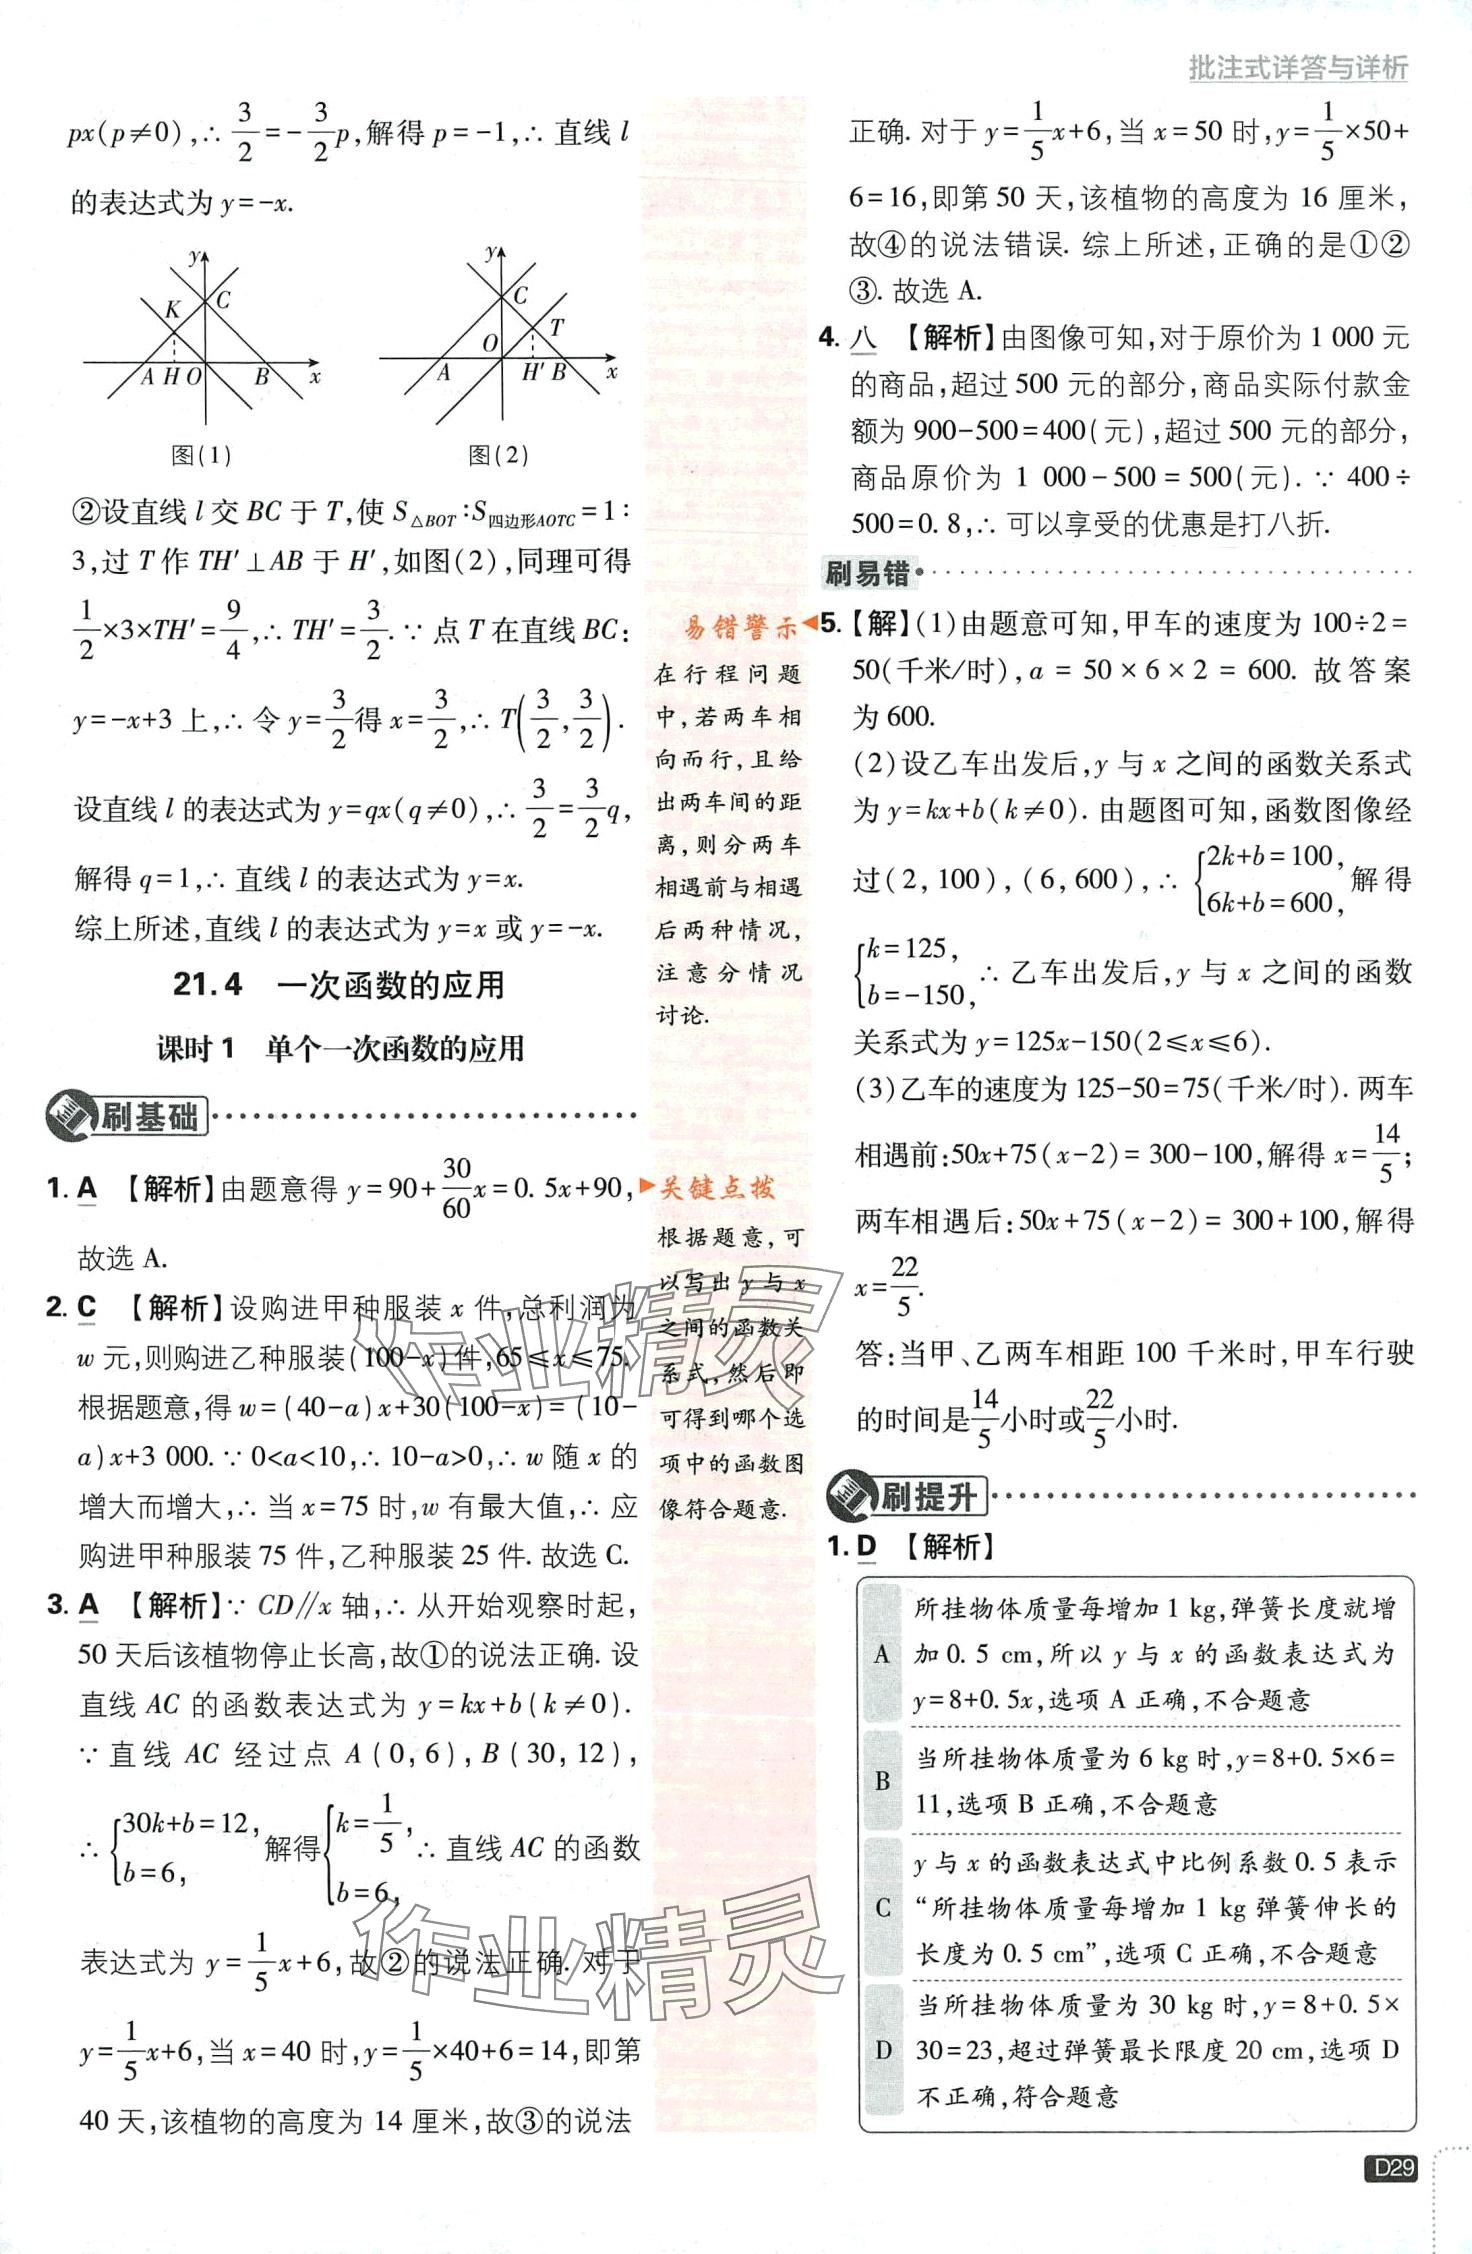 批注式详答与详析
px(p≠0),∴ 3/2=-3/2p,解得 p=-1,∴ 直线 l
的表达式为 y=-x.
y
K
C
A H O B x
图(1)
y
C
T
O
A H′ B x
图(2)
②设直线 l 交 BC 于 T,使 S△BOT:S四边形AOTC=1:
3,过 T 作 TH′⊥AB 于 H′,如图(2),同理可得
1/2×3×TH′=9/4,∴ TH′=3/2.∵ 点 T 在直线 BC:
y=-x+3 上,∴ 令 y=3/2得 x=3/2,∴ T(3/2,3/2).
设直线 l 的表达式为 y=qx(q≠0),∴ 3/2=3/2q,
解得 q=1,∴ 直线 l 的表达式为 y=x.
综上所述,直线 l 的表达式为 y=x 或 y=-x.
21.4 一次函数的应用
课时 1 单个一次函数的应用
刷基础
1. A 【解析】由题意得 y=90+30/60x=0.5x+90,
故选 A.
2. C 【解析】设购进甲种服装 x 件,总利润为
w 元,则购进乙种服装(100-x)件,65≤x≤75,
根据题意,得 w=(40-a)x+30(100-x)=(10-
a)x+3 000.∵ 0<a<10,∴ 10-a>0,∴ w 随 x 的
增大而增大,∴ 当 x=75 时,w 有最大值,∴ 应
购进甲种服装 75 件,乙种服装 25 件.故选 C.
3. A 【解析】∵ CD//x 轴,∴ 从开始观察时起,
50 天后该植物停止长高,故①的说法正确.设
直线 AC 的函数表达式为 y=kx+b(k≠0).
∵直线 AC 经过点 A(0,6),B(30,12),
∴ {30k+b=12, b=6, 解得{k=1/5, b=6, ∴ 直线 AC 的函数
表达式为 y=1/5x+6,故②的说法正确.对于
y=1/5x+6,当 x=40 时,y=1/5×40+6=14,即第
40 天,该植物的高度为 14 厘米,故③的说法
易错警示
在行程问题
中,若两车相
向而行,且给
出两车间的距
离,则分两车
相遇前与相遇
后两种情况,
注意分情况
讨论.
关键点拨
根据题意,可
以写出 y 与 x
之间的函数关
系式,然后即
可得到哪个选
项中的函数图
像符合题意.
正确.对于 y=1/5x+6,当 x=50 时,y=1/5×50+
6=16,即第 50 天,该植物的高度为 16 厘米,
故④的说法错误.综上所述,正确的是①②
③.故选 A.
4. 八 【解析】由图像可知,对于原价为 1 000 元
的商品,超过 500 元的部分,商品实际付款金
额为 900-500=400(元),超过 500 元的部分,
商品原价为 1 000-500=500(元).∵ 400÷
500=0.8,∴ 可以享受的优惠是打八折.
刷易错
5.【解】(1)由题意可知,甲车的速度为 100÷2=
50(千米/时),a=50×6×2=600.故答案
为 600.
(2)设乙车出发后,y 与 x 之间的函数关系式
为 y=kx+b(k≠0).由题图可知,函数图像经
过(2,100),(6,600),∴ {2k+b=100, 6k+b=600, 解得
{k=125, b=-150, ∴ 乙车出发后,y 与 x 之间的函数
关系式为 y=125x-150(2≤x≤6).
(3)乙车的速度为 125-50=75(千米/时).两车
相遇前:50x+75(x-2)=300-100,解得 x=14/5;
两车相遇后:50x+75(x-2)=300+100,解得
x=22/5.
答:当甲、乙两车相距 100 千米时,甲车行驶
的时间是14/5小时或22/5小时.
刷提升
1. D 【解析】
A 所挂物体质量每增加 1 kg,弹簧长度就增
加 0.5 cm,所以 y 与 x 的函数表达式为
y=8+0.5x,选项 A 正确,不合题意
B 当所挂物体质量为 6 kg 时,y=8+0.5×6=
11,选项 B 正确,不合题意
C y 与 x 的函数表达式中比例系数 0.5 表示
“所挂物体质量每增加 1 kg 弹簧伸长的
长度为 0.5 cm”,选项 C 正确,不合题意
D 当所挂物体质量为 30 kg 时,y=8+0.5×
30=23,超过弹簧最长限度 20 cm,选项 D
不正确,符合题意
D29
作业精灵
作业精灵